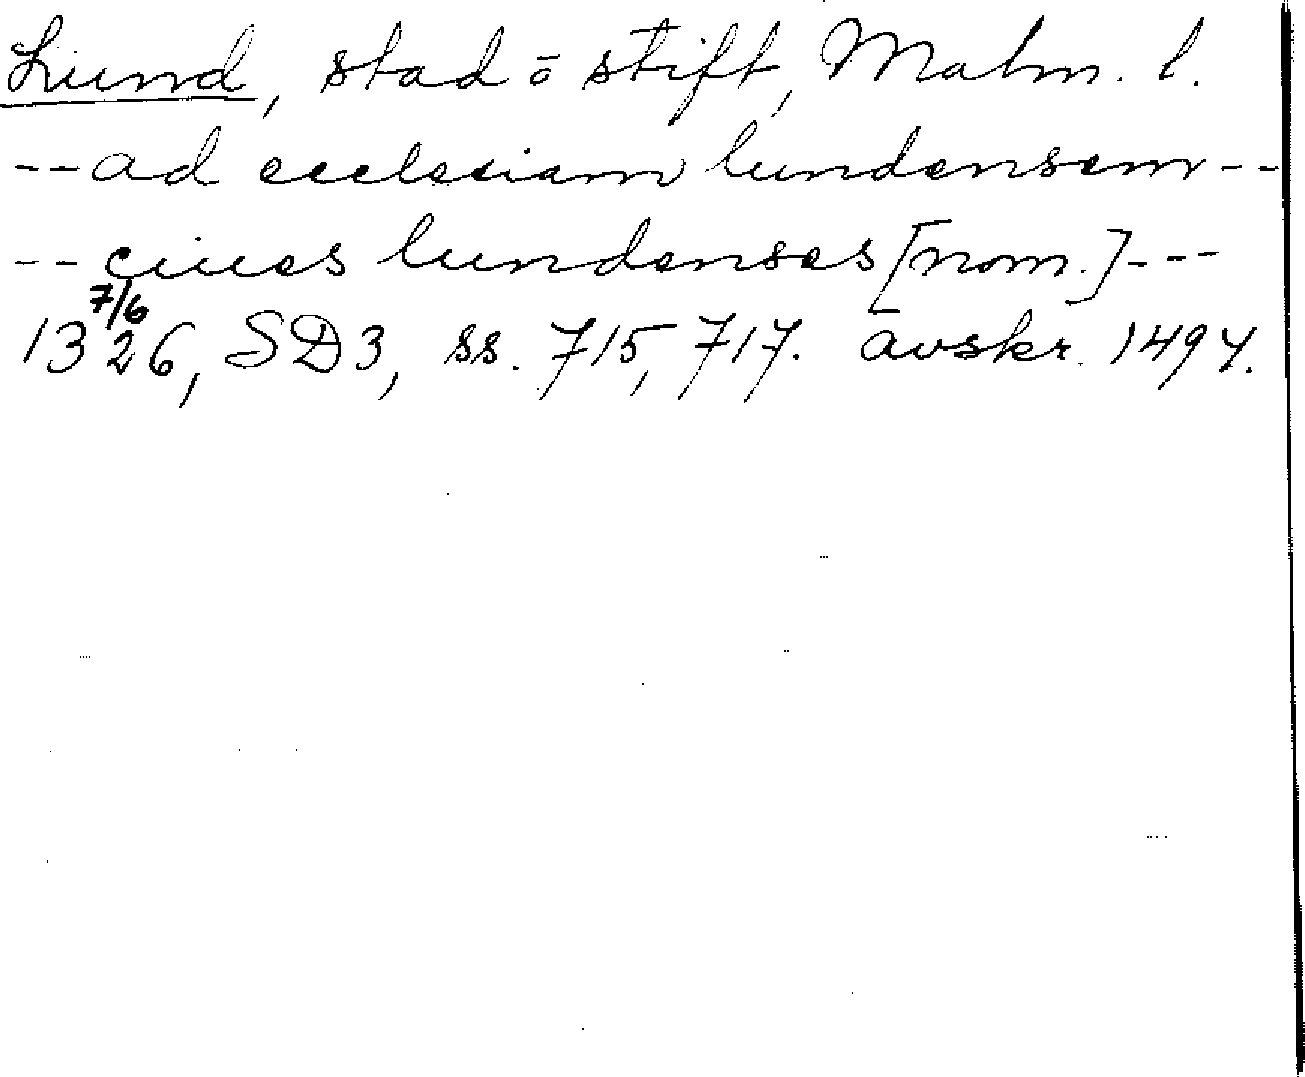 Lund, stad o stift, Malm. l.
-- ad ecclesiam lundensem --
-- ciues lundenses [nom.] ---
7/6
1326, SD3, ss. 715, 717. avskr. 1494.